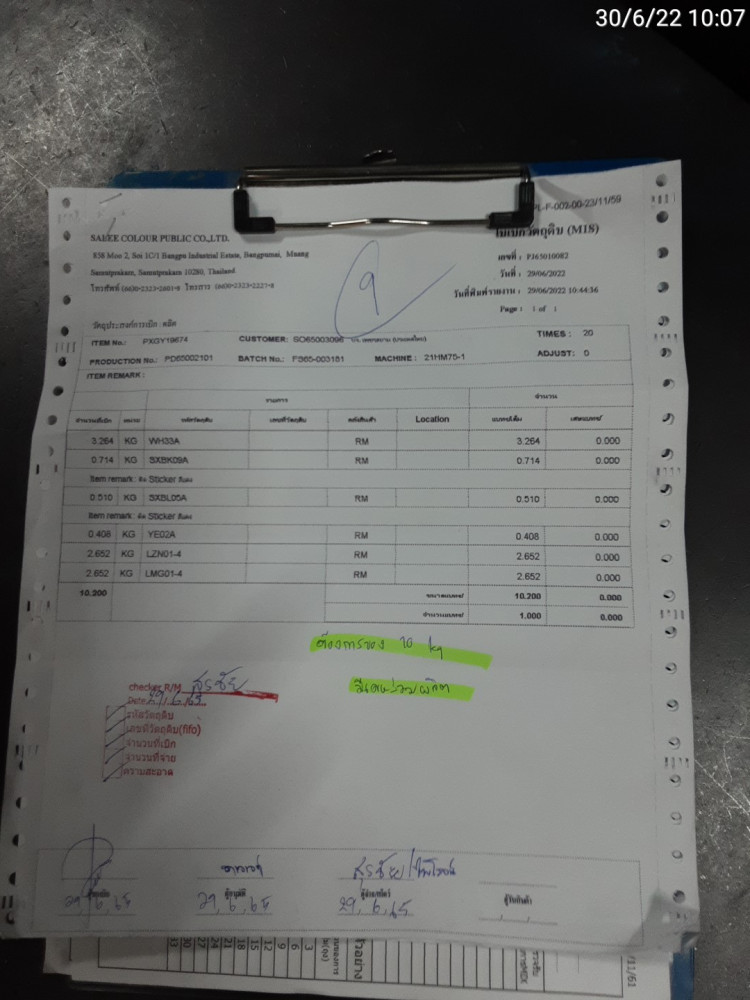 30/6/22 10:07
PL-F-002-00-23/11/59
SALEE COLOUR PUBLIC CO.,LTD.
ใบเบิกวัตถุดิบ (M18)
858 Moo 2, Soi 1C/1 Bangpu Industrial Estate, Bangpumai, Muang
Samutprakarn, Samutprakarn 10280, Thailand
โทรศัพท์ (66)0-2323-2601-8 โทรสาร (66)0-2323-2221-8
เลขที่ : PJ65010082
วันที่ : 29/06/2022
วันที่พิมพ์รายงาน : 29/06/2022 10:44:36
Page : 1 of 1
9
วัตถุประสงค์การเบิก : ผลิต
ITEM No.: PXGY19874 CUSTOMER: SO65003096 TIMES : 20
PRODUCTION No.: PD65002101 BATCH No.: F365-003181 MACHINE : 21HM75-1 ADJUST: 0
ITEM REMARK :
รายการ จำนวน
จำนวนที่เบิก หน่วย รหัสวัตถุดิบ เลขที่วัตถุดิบ คลังสินค้า Location แบทช์เต็ม เศษแบทช์
3.264 KG WH33A RM 3.264 0.000
0.714 KG SXBK09A RM 0.714 0.000
Item remark: ติด Sticker สีแดง
0.510 KG SXBL05A RM 0.510 0.000
Item remark: ติด Sticker สีแดง
0.408 KG YE02A RM 0.408 0.000
2.652 KG LZN01-4 RM 2.652 0.000
2.652 KG LMG01-4 RM 2.652 0.000
10.200 ขนาดแบทช์ 10.200 0.000
จำนวนแบทช์ 1.000 0.000
ต้องการของ 10 kg
checker R/M สุรชัย
Date 29/6/65
รหัสวัตถุดิบ
เลขที่วัตถุดิบ(fifo)
จำนวนที่เบิก
จำนวนที่จ่าย
ความสะอาด
สุรชัย/
ผู้อนุมัติ ผู้รับคืนเข้า
29, 6, 65 29, 6, 65 29, 6, 65
33 30 27 24 21 18 15 12 9 6 3
/11/61